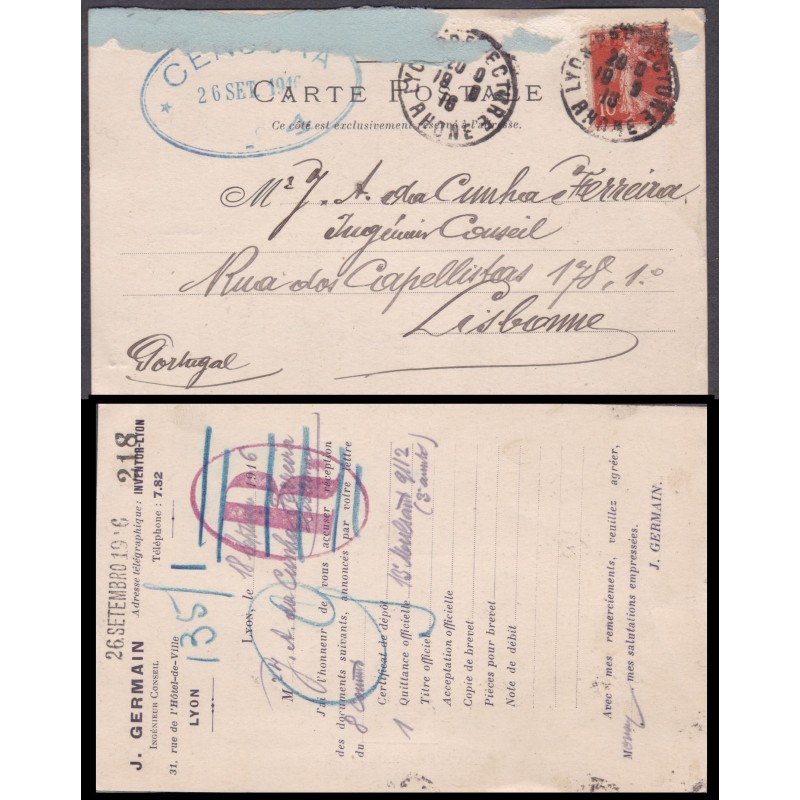 CENSURA
26 SET. 1916
LYON PREFECTURE
RHONE
LYON PREFECTURE
RHONE
10
CARTE POSTALE
Ce côté est exclusivement réservé à l'adresse.
Mr J. A. da Cunha Ferreira
Ingénieur Conseil
Rua dos Capellistas 178, 1.o
Lisbonne
Portugal
26.SETEMBRO 1916 218
J. GERMAIN
INGÉNIEUR CONSEIL
31, rue de l'Hôtel-de-Ville
LYON
Adresse télégraphique: INVENTOR-LYON
Téléphone : 7.82
135/1
LYON, le 18 1916
Mr J. A. da Cunha Ferreira
J'ai l'honneur de vous accuser réception
des documents suivants, annoncés par votre lettre
du 8 Courant
Certificat de dépôt
1 Quittance officielle 9112
Titre officiel
Acceptation officielle
Copie de brevet
Pièces pour brevet
Note de débit
Avec mes remerciements, veuillez agréer,
mes salutations empressées.
J. GERMAIN.